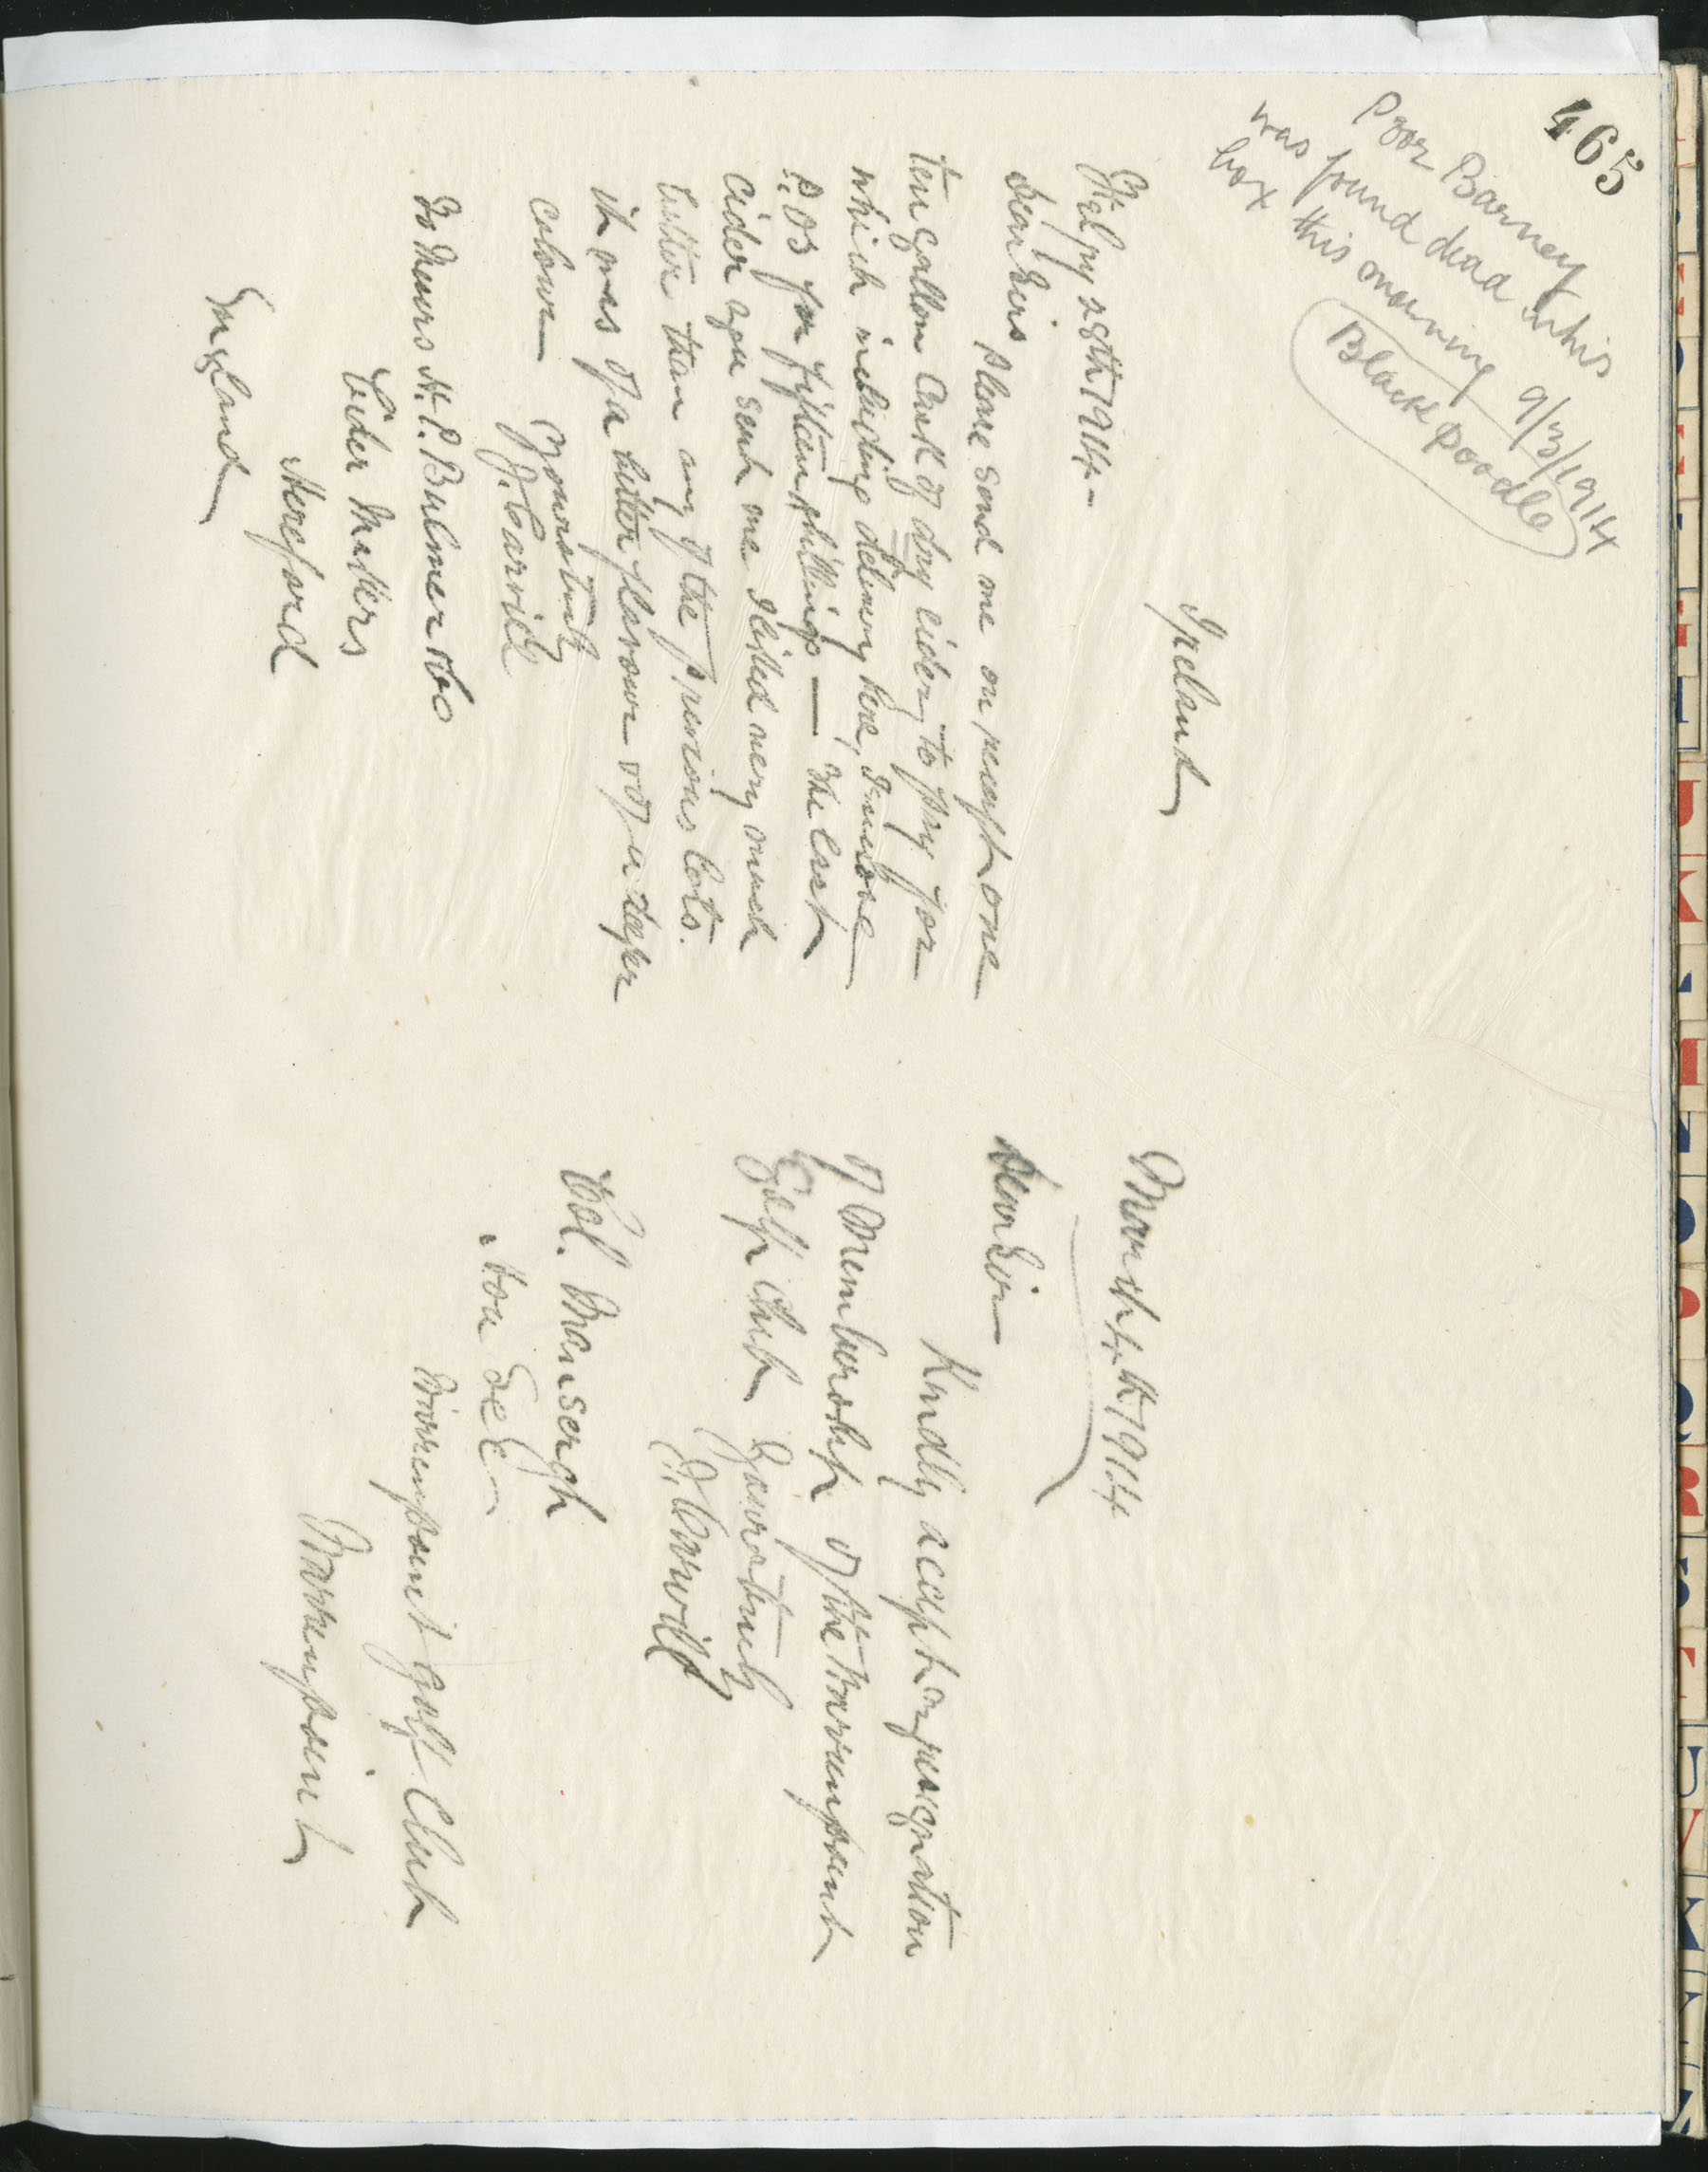 465
Poor Barney
was found dead in his
box this morning 9/3/1914
Black Poodle
Ireland
Feby 28th 1914 -
Dear Sirs
Please send me on receipt one
ten gallon Cask of dry cider, to pay for
which including delivery here, I enclose
P.O's for fifteen shillings — The last
cider you sent me I liked very much
better than any of the previous lots.
it was of a better flavour & of a deeper
colour
Yours truly
J. Carvill
To Messrs H. P. Bulmer & Co
Cider Makers
Hereford
England
March 4th 1914
Dear Sir
Kindly accept my resignation
of Membership of the Warrenpoint
Golf Club
Yours truly
J. Carvill
Col. Mansergh
Hon Sec
Warrenpoint Golf Club
Warrenpoint